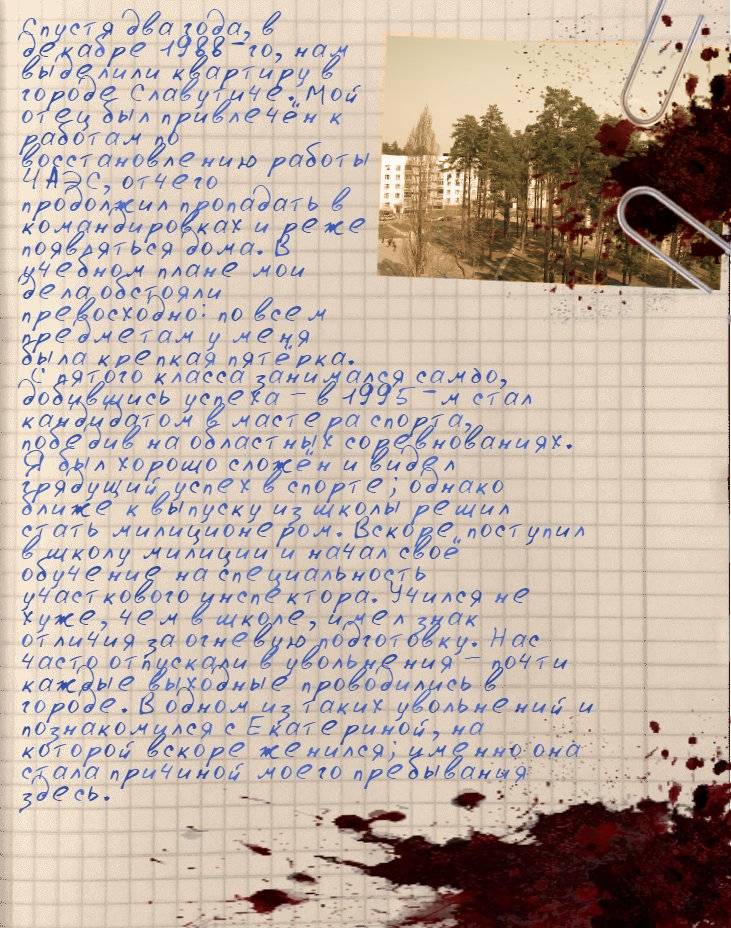 Спустя два года, в
декабре 1988-го, нам
выделили квартиру в
городе Славутиче. Мой
отец был привлечён к
работам по
восстановлению работы
ЧАЭС, отчего
продолжил пропадать в
командировках и реже
появляться дома. В
учебном плане мои
дела обстояли
превосходно: по всем
предметам у меня
была крепкая пятёрка.
С пятого класса занимался самбо,
добившись успеха - в 1995-м стал
кандидатом в мастера спорта,
победив на областных соревнованиях.
Я был хорошо сложён и видел
грядущий успех в спорте; однако
ближе к выпуску из школы решил
стать милиционером. Вскоре поступил
в школу милиции и начал своё
обучение на специальность
участкового инспектора. Учился не
хуже, чем в школе, имел знак
отличия за огневую подготовку. Нас
часто отпускали в увольнения - почти
каждые выходные проводились в
городе. В одном из таких увольнений и
познакомился с Екатериной, на
которой вскоре женился; именно она
стала причиной моего пребывания
здесь.